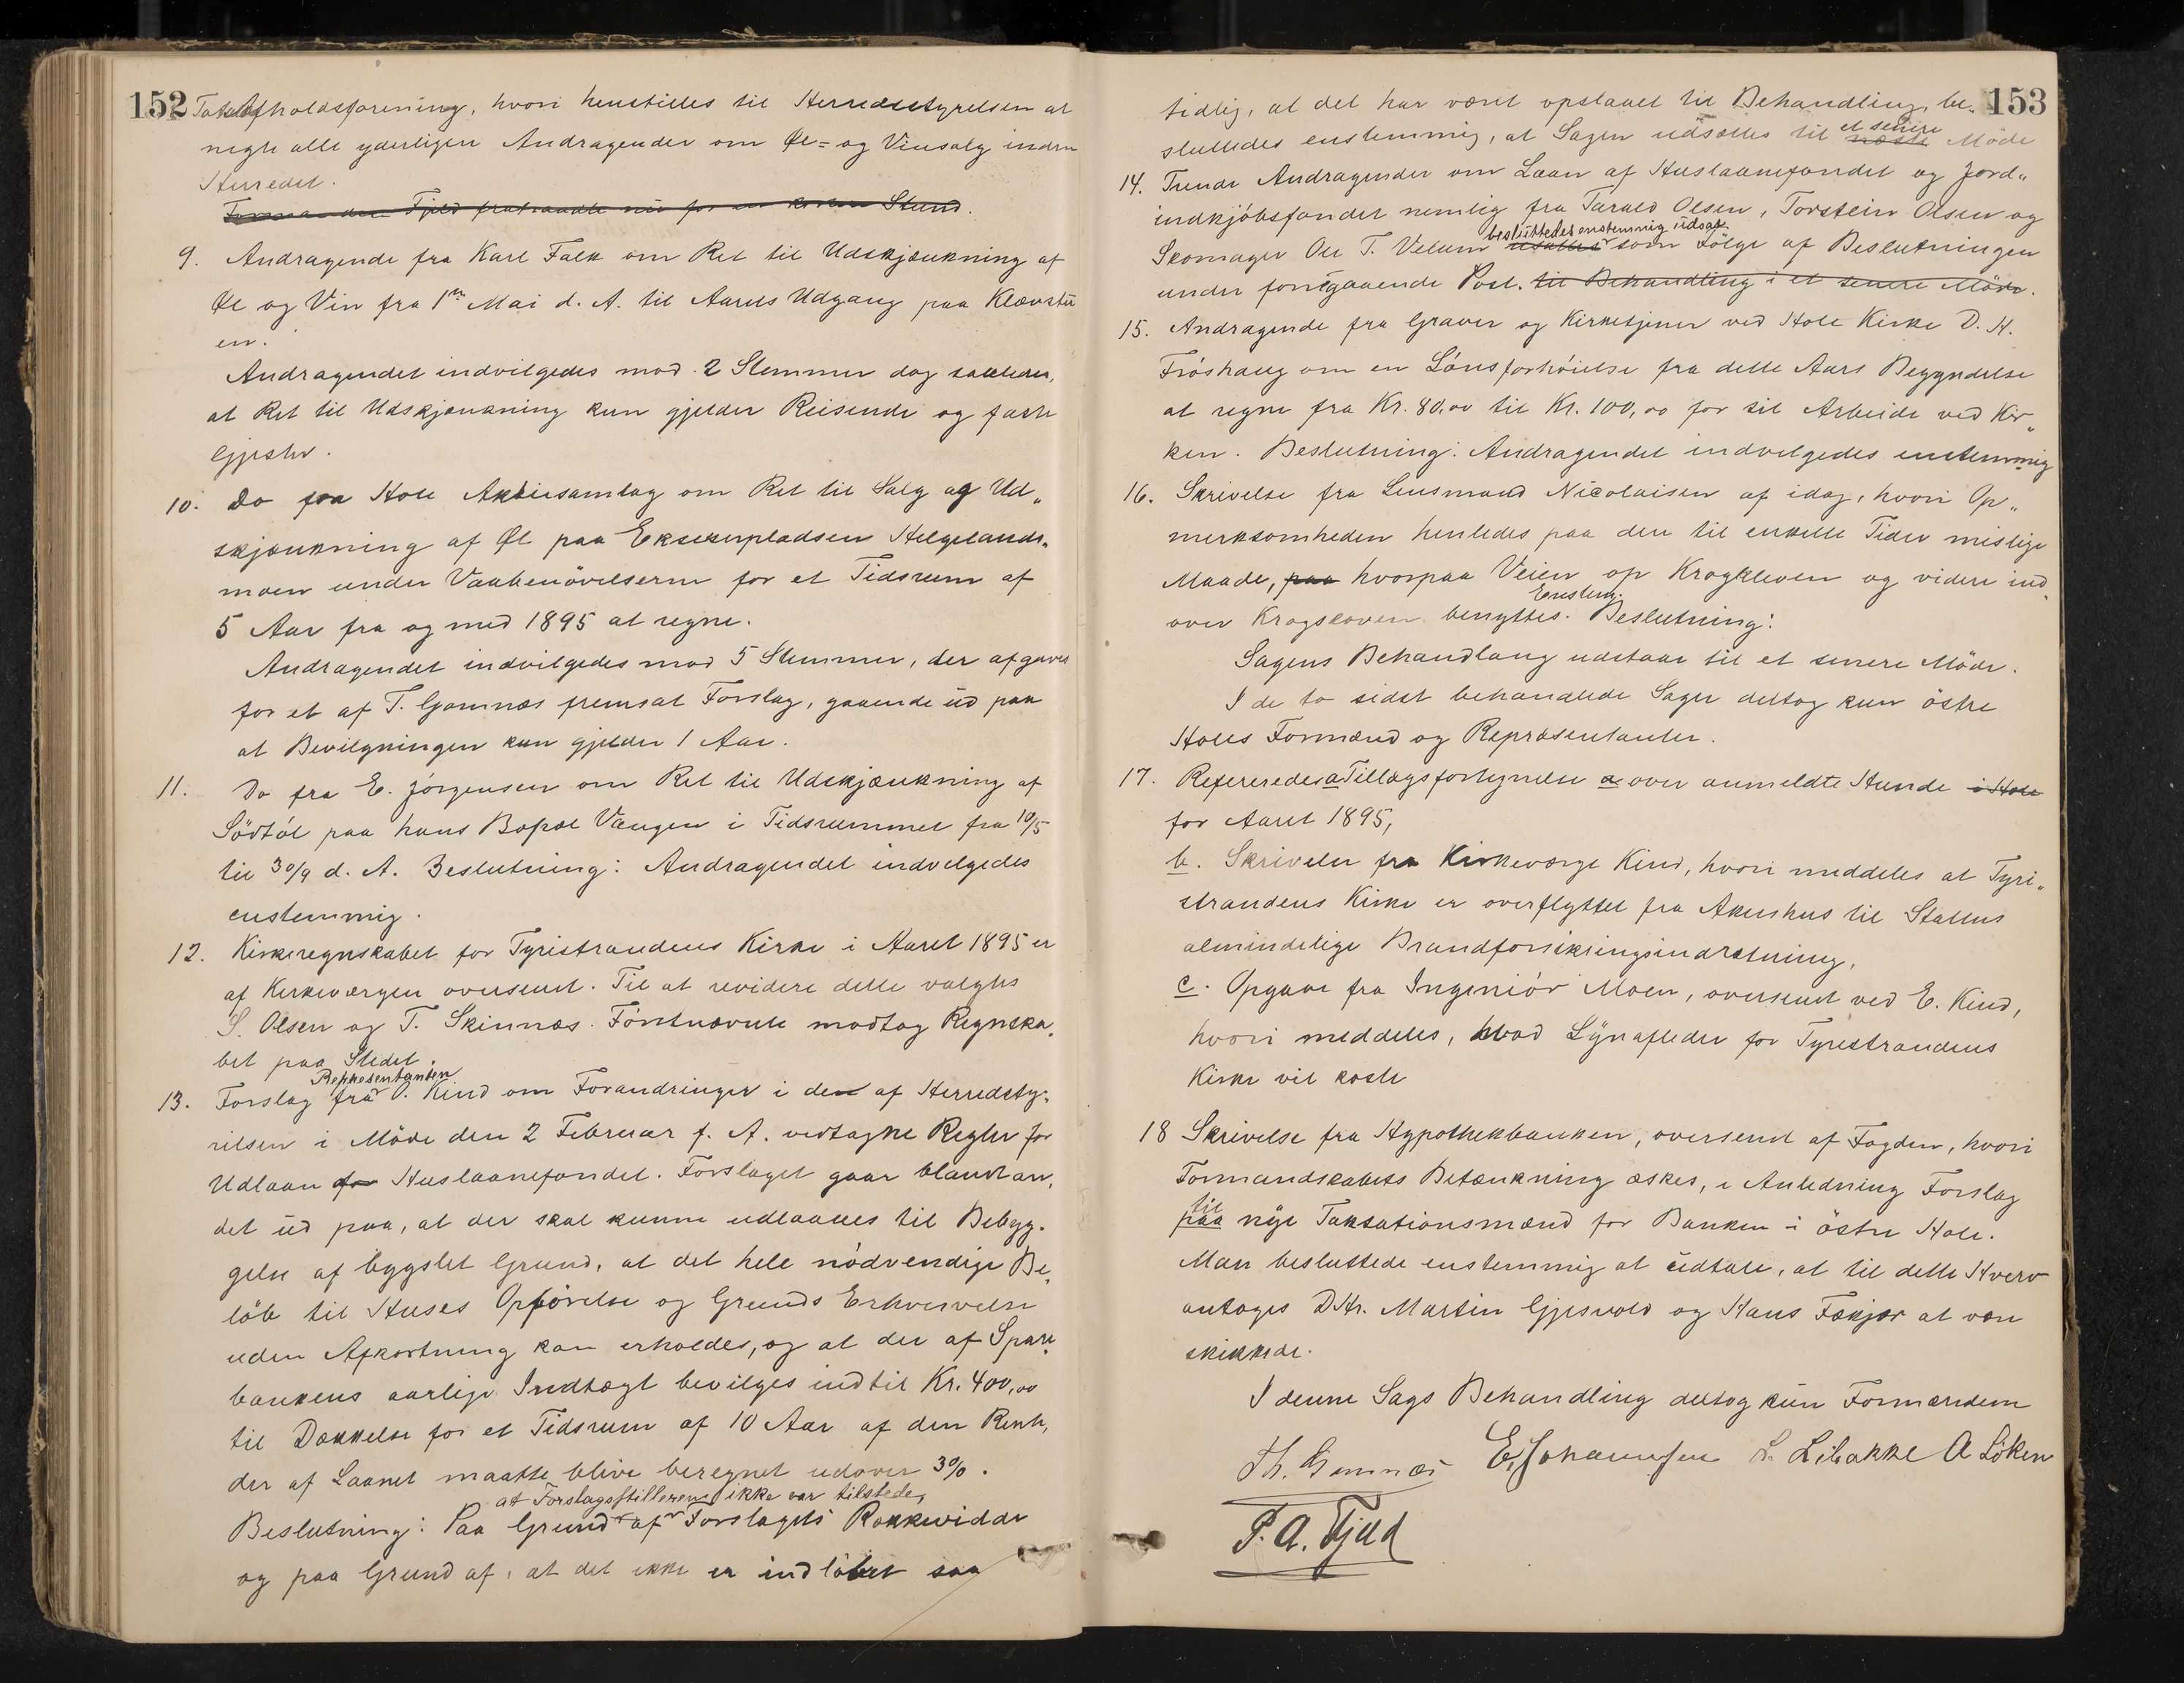 152 Totalafholdsforening, hvori henstilles til Herredsstyrelsen at
negte alle yderligere Andragender om Øl= og Vinsalg inden
Herredet.
Formanden Fjeld fratraadte nu for en kortere Stund.
9. Andragende fra Karl Falk om Ret til Udskjænkning af
Øl og Vin fra 1ste Mai d. A. til Aarets Udgang paa Klævstu
en.
Andragendet indvilgedes mod 2 Stemmer dog saaledes,
at Ret til Udskjænkning kun gjelder Reisende og faste
Gjester.
10. Do fra Hole Aktiesamlag om Ret til Salg og Ud„
skjænkning af Øl paa Ekserserpladsen Helgelands„
moen under Vaabenövelserne for et Tidsrum af
5 Aar fra og med 1895 at regne.
Andragendet indvilgedes mod 5 Stemmer, der afgaves
for et af T. Gomnæs fremsat Forslag, gaaende ud paa
at Bevilgningen kun gjelder 1 Aar.
11. Do fra E. Jörgensen om Ret til Udskjænkning af
Södtöl paa hans Bopæl Vængen i Tidsrummet fra 10/5
til 30/9 d. A. Beslutning: Andragendet indvilgedes
enstemmig.
12. Kirkeregnskabet for Tyristrandens Kirke i Aaret 1895 er
af Kirkeværgen oversendt. Til at revidere dette valgtes
S. Olsen og T. Skinnæs. Förstnævnte modtog Regnska„
bet paa Stedet.
Repræsentanten
13. Forslag fra O. Kind om Forandringer i den af Herredsty„
relsen i Möde den 2 Februar f. A. vedtagne Regler for
Udlaan af Huslaanefondet. Forslaget gaar blandt an„
det ud paa, at der skal kunne udlaanes til Bebyg„
gelse af bygslet Grund, at det hele nödvendige Be„
löb til Huses Opförelse og Grunds Erhvervelse
uden Afkortning kan erholdes, og at der af Spare„
bankens aarlige Indtægt bevilges indtil Kr. 400,00
til Dækkelse for et Tidsrum af 10 Aar af den Rente,
der af Laanet maatte blive beregnet udover 3%.
at Forslagsstilleren ikke var tilstede,
Beslutning: Paa Grund af Forslagets Rækkevidde
og paa Grund af, at det ikke er indlöbet saa
153
tidlig, at det har været opslaaet til Behandling, be„
et senere
sluttedes enstemmig, at Sagen udsættes til næste Möde
14. Trende Andragender om Laan af Huslaanefondet og Jord„
indkjöbsfondet nemlig fra Tarald Olsen, Torstein Olsen og
besluttedes enstemmig udsat
Skomager Ole T. Velum udsattes som Fölge af Beslutningen
under foregaaende Post. til Behandling i et senere Möde.
15. Andragende fra Graver og Kirketjener ved Hole Kirke D. H.
Fröshaug om en Lönsforhöielse fra dette Aars Begyndelse
at regne fra Kr. 80,00 til Kr. 100,00 for sit Arbeide ved Kir„
ken. Beslutning: Andragendet indvilgedes enstemmig
16. Skrivelse fra Lensmand Nicolaisen af idag, hvori Op„
merksomheden henledes paa den til enkelte Tider mislige
Maade, paa hvorpaa Veien op Krogkleven og videre ind„
Enstem.
over Krogskoven benyttes. Beslutning:
Sagens Behandlang udstaar til et senere Möde.
I de to sidst behandlede Sager deltog kun östre
Holes Formænd og Repræsentanter.
17. Refereredes a Tillægsfortegnelse a over anmeldte Hunde i Hole
for Aaret 1895,
b. Skrivelse fra Kirkeværge Kind, hvori meddeles at Tyri„
strandens Kirke er overflyttet fra Akershus til Statens
almindelige Brandforsikringsindretning,
c. Opgave fra Ingeniör Moen, oversendt ved E. Kind,
hvori meddeles, hvad Lynafleder for Tyristrandens
Kirke vil koste
18 Skrivelse fra Hypothekbanken, oversendt af Fogden, hvori
Formandskabets Betænkning æskes, i Anledning Forslag
til
paa nye Taksationsmænd for Banken i östre Hole.
Man besluttede enstemmig at udtale, at til dette Hverv
antages DHr. Martin Gjesvold og Hans Fækjær at være
skikkede.
I denne Sags Behandling deltog kun Formændene
Th. Gomnæs E. Johannesen L. Libakke A Löken
P. A. Fjeld